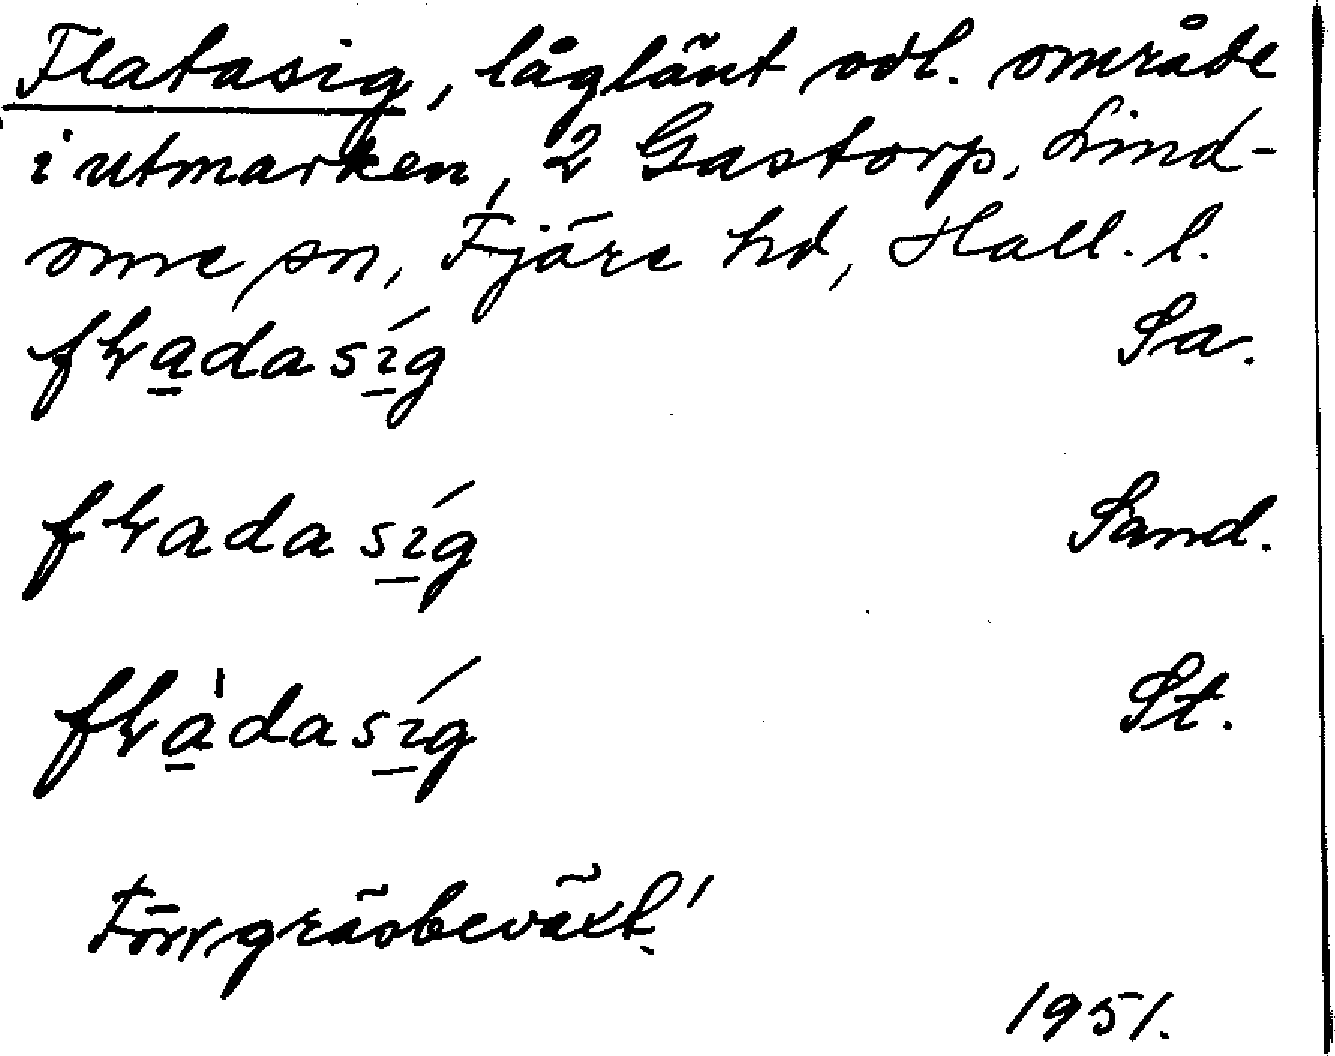 Flatasig, låglänt odl. område
i utmarken, 2 Gastorp, Lind-
ome sn, Fjäre hd, Hall. l.
fładasíg Sa.
fładasíg Sand.
flàdasíg St.
Förr gräsbeväxt!
1951.